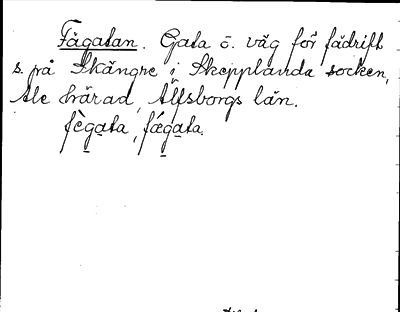 Fägatan. Gata o. väg för fädrift
s. på Skängne i Skepplanda socken,
Ale härad, Älfsborgs län.
fègata, fǽgata.